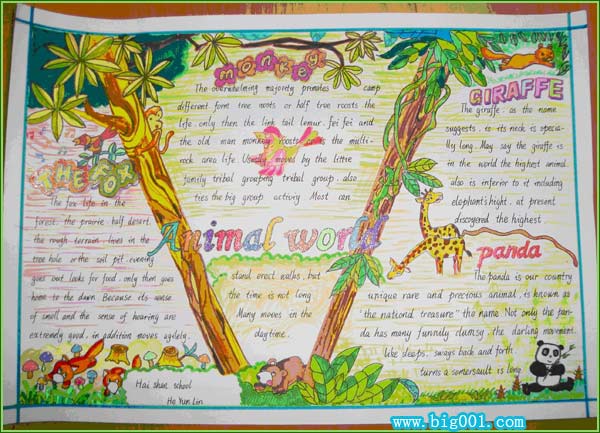 monkey
The overwhelming majority primates camp
different form tree roots or half tree roosts the
life. only then the link tail lemur, fei fei and
the old man monkey roosts in is the multi-
rock area life Usually moved by the little
family tribal grouping tribal group. also
ties the big group activity Most can
stand erect walks. but
the time is not long
Many moves in the
daytime.
THE FOX
The fox life in the
forest. the prairie. half desert.
the rough terrain lives in the
tree hole or the soil pit. evening
goes out looks for food. only then goes
home to the dawn Because its sense
of smell and the sense of hearing are
extremely good, in addition moves agilely.
Animal world
GIRAFFE
The giraffe. as the name
suggests. is its neck is specia-
lly long. May say the giraffe is
in the world the highest animal.
also is inferior to it including
elephant's hight. at present
discovered the highest
panda
The panda is our country
unique rare and precious animal. is known as
"the national treasure" the name Not only the pan-
da has many funnily clumsy. the darling movement.
Like sleeps. sways back and forth.
turns a somersault is long
Hai shan school
He Yun Lin
www.big001.com